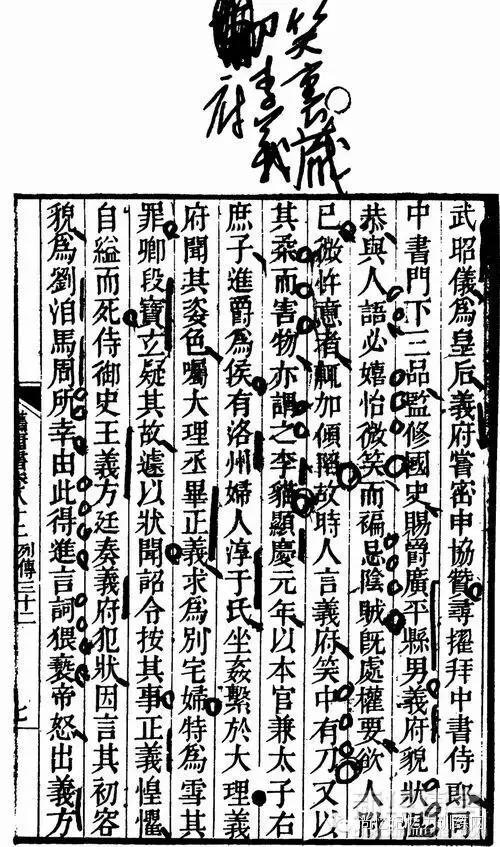 笑裏藏
刀李義
府
武昭儀爲皇后義府嘗密申協贊尋擢拜中書侍郎同
中書門下三品監修國史賜爵廣平縣男義府貌狀溫
恭與人語必嬉怡微笑而褊忌陰賊旣處權要欲人附
已微忤意者輒加傾陷故時人言義府笑中有刀又以
其柔而害物亦謂之李貓顯慶元年以本官兼太子右
庶子進爵爲侯有洛州婦人淳于氏坐姦繫於大理義
府聞其姿色囑大理丞畢正義求爲別宅婦特爲雪其
罪卿段寶玄疑其故遽以狀聞詔令按其事正義惶懼
自縊而死侍御史王義方廷奏義府犯狀因言其初容
貌爲劉洎馬周所幸由此得進言詞猥褻帝怒出義方
舊唐書卷八十二 列傳三十二
七